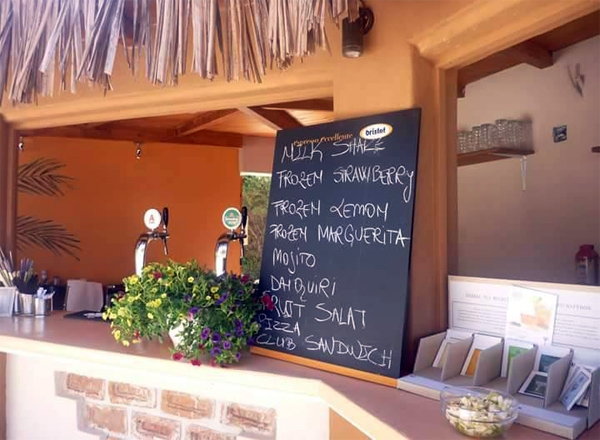 espresso eccellente
bristot
MILK SHAKE
FROZEM STRAWBERRY
FROZEM LEMOM
FROZEM MARGUERITA
MOJITO
DAIQUIRI
FRUIT SALAT
PIZZA
CLUB SANDWICH